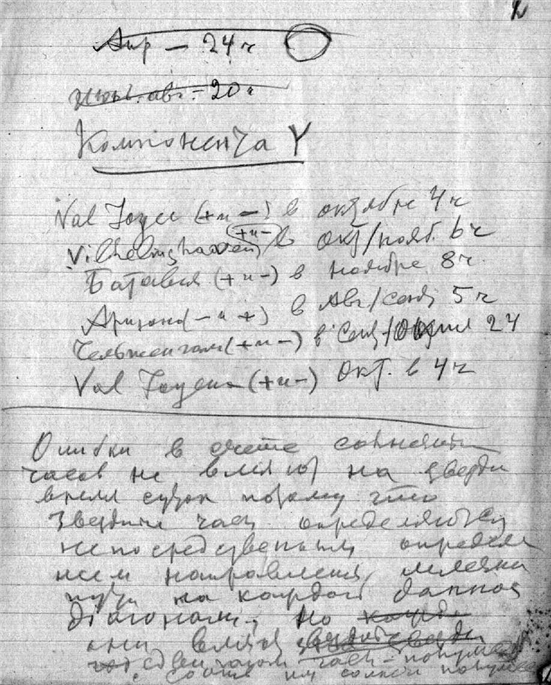 Апр — 24 ч
июнь. авг. — 20 ч
Компонента Y
Val Joyeu (+ и —) в октябре 4 ч
Vilhelmshaven (+ и —) в окт/нояб. 6 ч
Батавия (+ и —) в ноябре 8 ч.
Аризона (— и +) в Авг/сент 5 ч
Чельтенгам (+ и —) в Сент/ 24
Val Joyeu (+ и —) окт. в 4 ч
Ошибки в счете солнечн
часов не влияют на звездн
время суток потому что
звездные часы определяются
непосредственным определе
нием направления, млечн
пути на каждой данной
диагонали, но
они влия